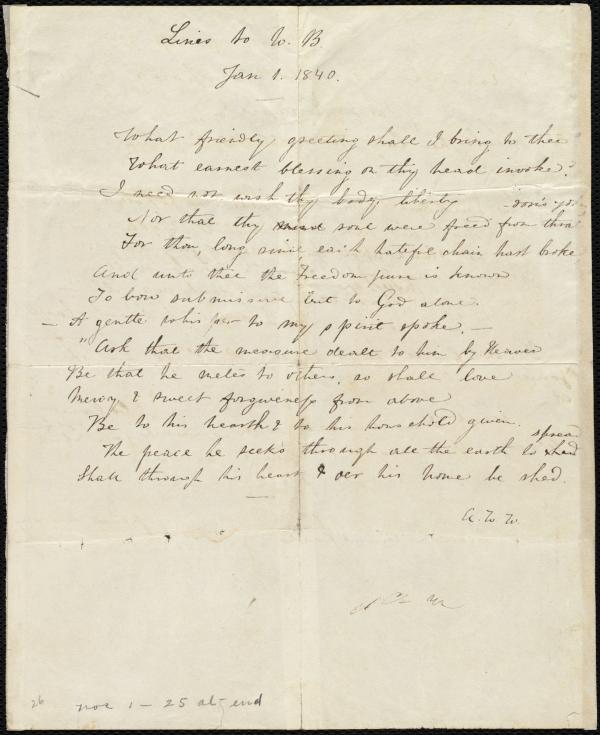 Lines to W. B.
Jan 1. 1840.
What friendly greeting shall I bring to thee
What earnest blessing on thy head invoke?
I need not wish thy body liberty
Nor that thy mind soul were freed from thral
For thou, long since each hateful chain hast broke
And unto thee the Freedom pure is known
To bow submissive but to God alone.
— A gentle whisper to my spirit spoke. —
"Ask that the measure dealt to him by Heaven
Be that he metes to others, so shall love
Mercy & sweet forgiveness from above
Be to his hearth & to his household given.
The peace he seeks through all the earth to shed spread
Shall through his heart & oer his home be shed.
A. W. W.
26
nos 1 - 25 at end